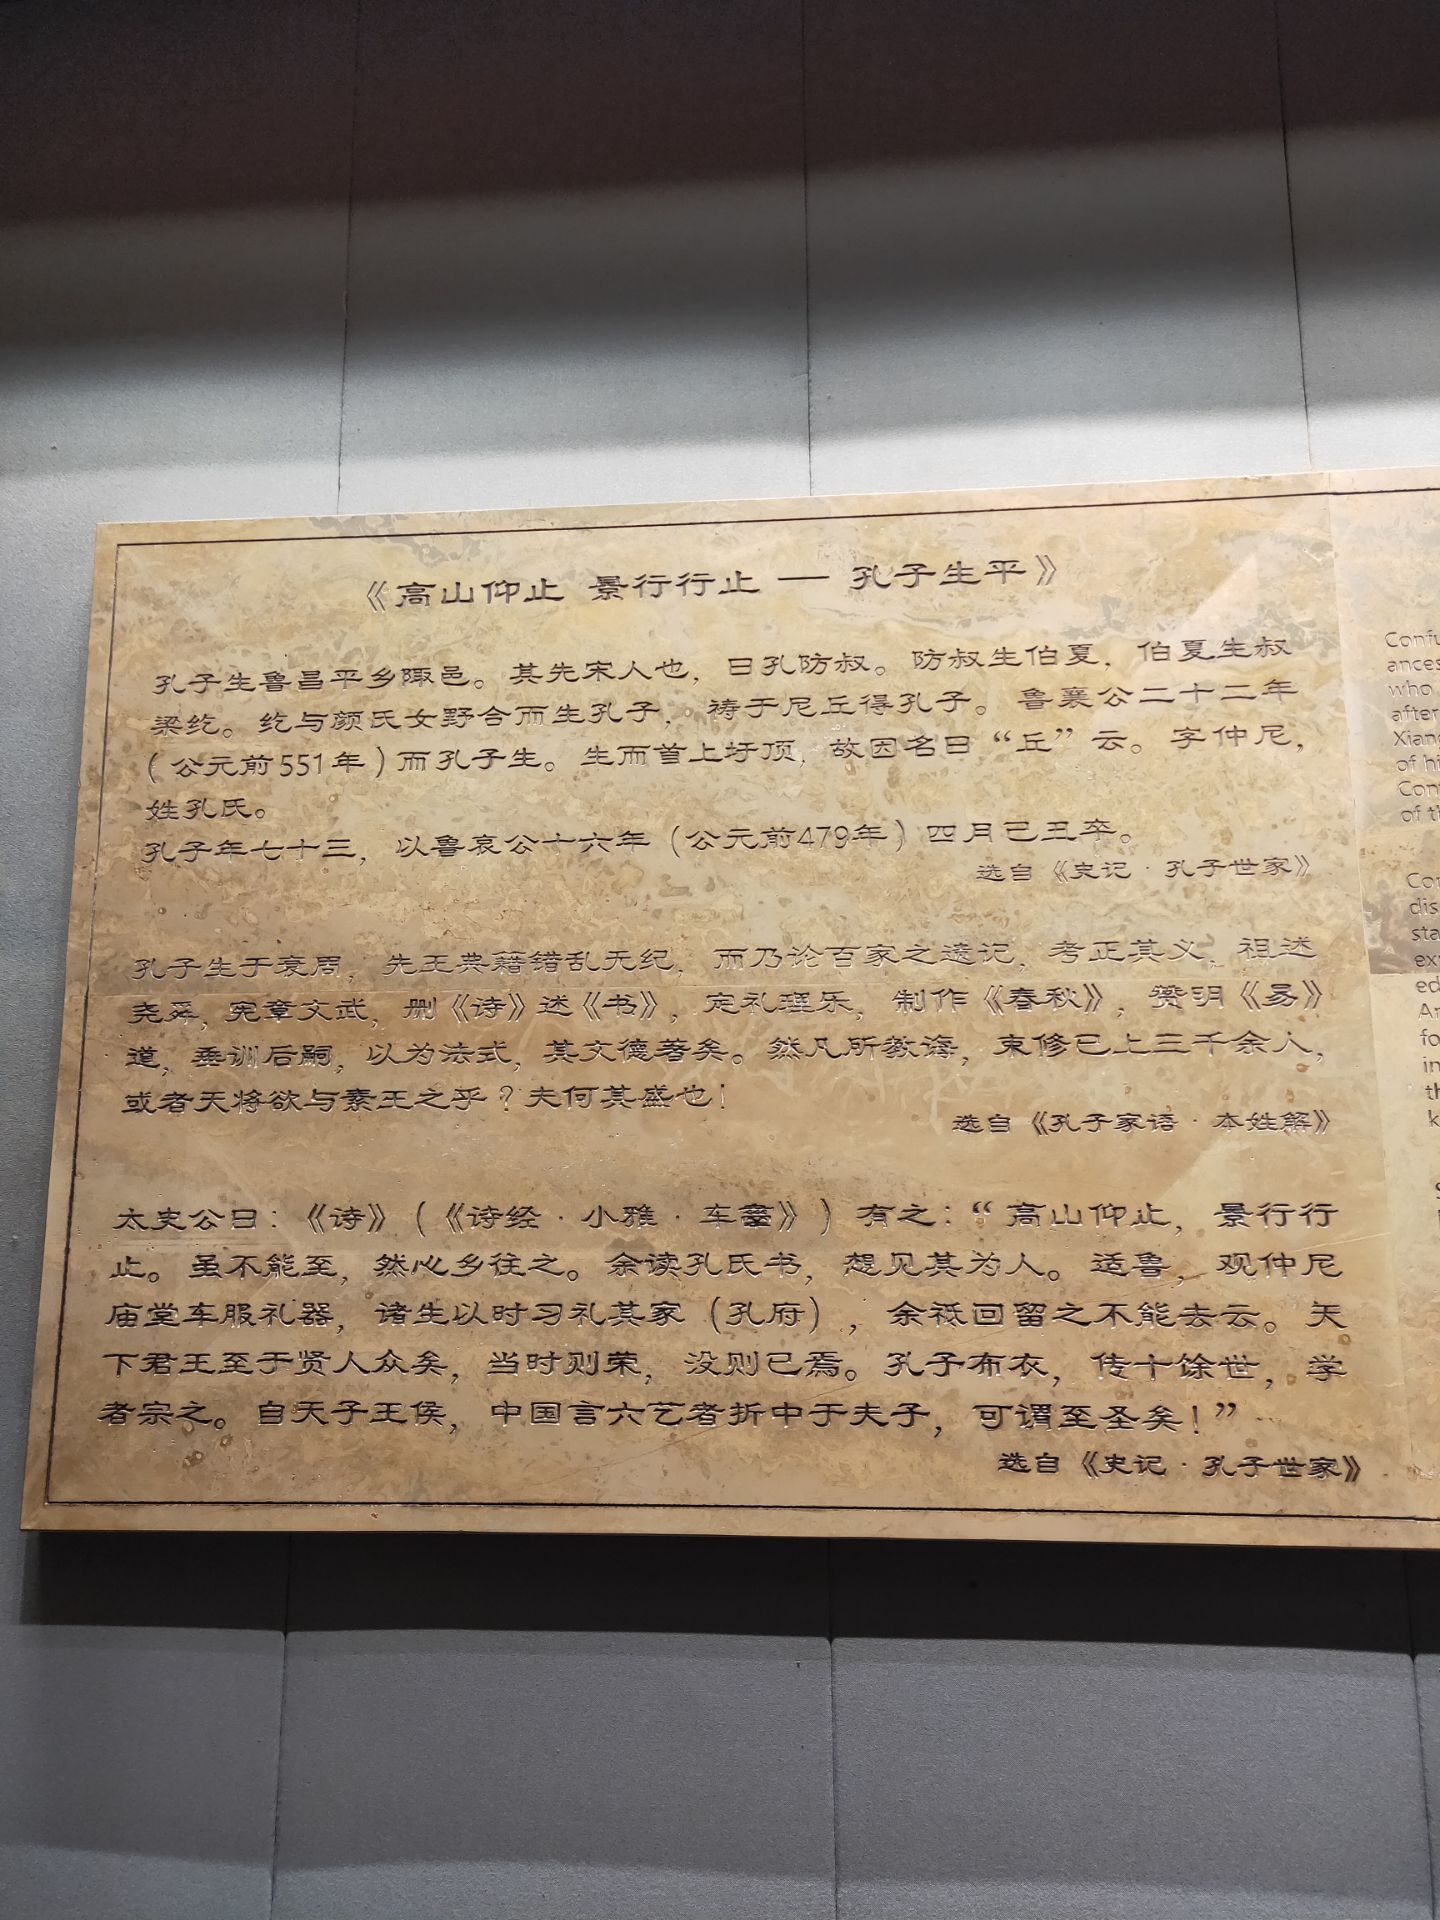 《高山仰止 景行行止 — 孔子生平》
孔子生鲁昌平乡陬邑。其先宋人也，曰孔防叔。防叔生伯夏，伯夏生叔
梁纥。纥与颜氏女野合而生孔子，祷于尼丘得孔子。鲁襄公二十二年
（公元前551年）而孔子生。生而首上圩顶，故因名曰“丘”云。字仲尼，
姓孔氏。
孔子年七十三，以鲁哀公十六年（公元前479年）四月己丑卒。
选自《史记·孔子世家》
孔子生于衰周，先王典籍错乱无纪，而乃论百家之遗记，考正其义，祖述
尧舜，宪章文武，删《诗》述《书》，定礼理乐，制作《春秋》，赞明《易》
道，垂训后嗣，以为法式，其文德著矣。然凡所教诲，束修已上三千余人，
或者天将欲与素王之乎？夫何其盛也！
选自《孔子家语·本姓解》
太史公曰：《诗》（《诗经·小雅·车舝》）有之：“高山仰止，景行行
止。虽不能至，然心乡往之。余读孔氏书，想见其为人。适鲁，观仲尼
庙堂车服礼器，诸生以时习礼其家（孔府），余祗回留之不能去云。天
下君王至于贤人众矣，当时则荣，没则已焉。孔子布衣，传十馀世，学
者宗之。自天子王侯，中国言六艺者折中于夫子，可谓至圣矣！”
选自《史记·孔子世家》
Confu
ances
who
after
Xiang
of hi
Con
of th
Con
dis
sta
ex
ed
An
fo
in
th
k